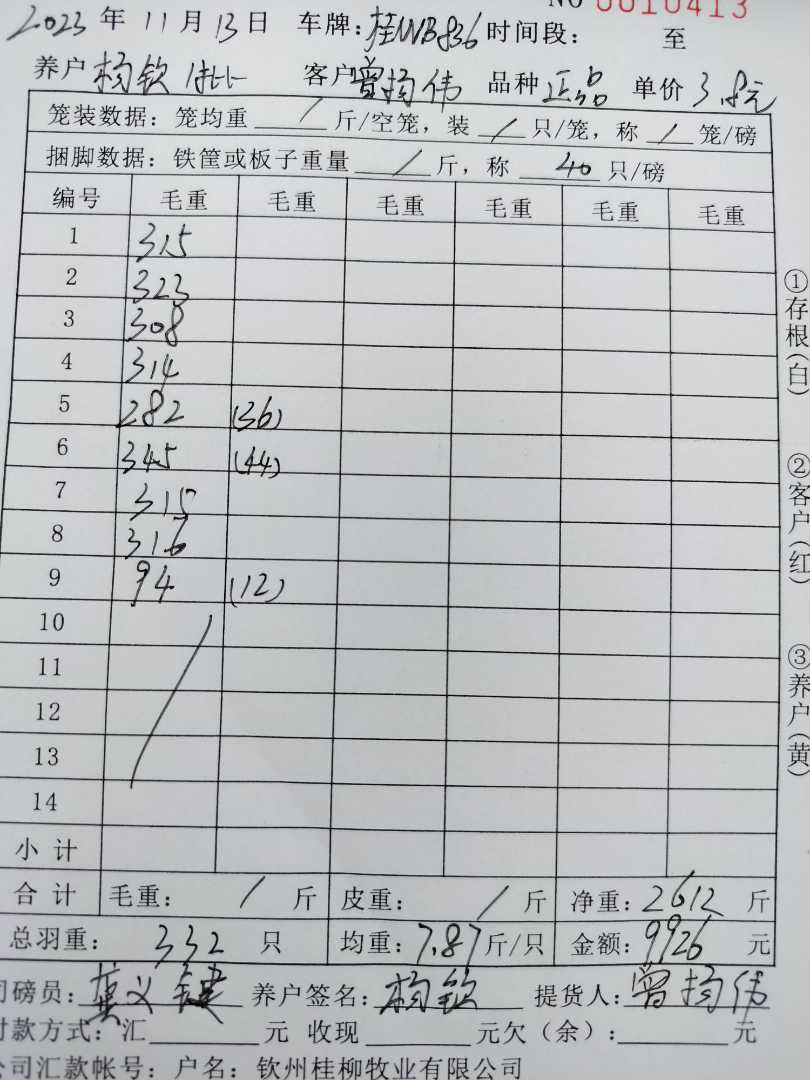 NO 0010413
2023 年 11 月 13 日 车牌: 桂NB836 时间段: 至
养户 杨钦 客户 曾扬伟 品种 正品 单价 3.8元
笼装数据: 笼均重 / 斤/空笼, 装 / 只/笼, 称 / 笼/磅
捆脚数据: 铁筐或板子重量 / 斤, 称 40 只/磅
编号 毛重 毛重 毛重 毛重 毛重 毛重
1 315
2 323
3 308
4 314
5 282 (36)
6 345 (44)
7 315
8 316
9 94 (12)
10
11
12
13
14
小计
合计 毛重: / 斤 皮重: / 斤 净重: 2612 斤
总羽重: 332 只 均重: 7.87 斤/只 金额: 9926 元
司磅员: 义健 养户签名: 杨钦 提货人: 曾扬伟
付款方式: 汇 元 收现 元欠(余): 元
公司汇款帐号: 户名: 钦州桂柳牧业有限公司
①存根(白)
②客户(红)
③养户(黄)